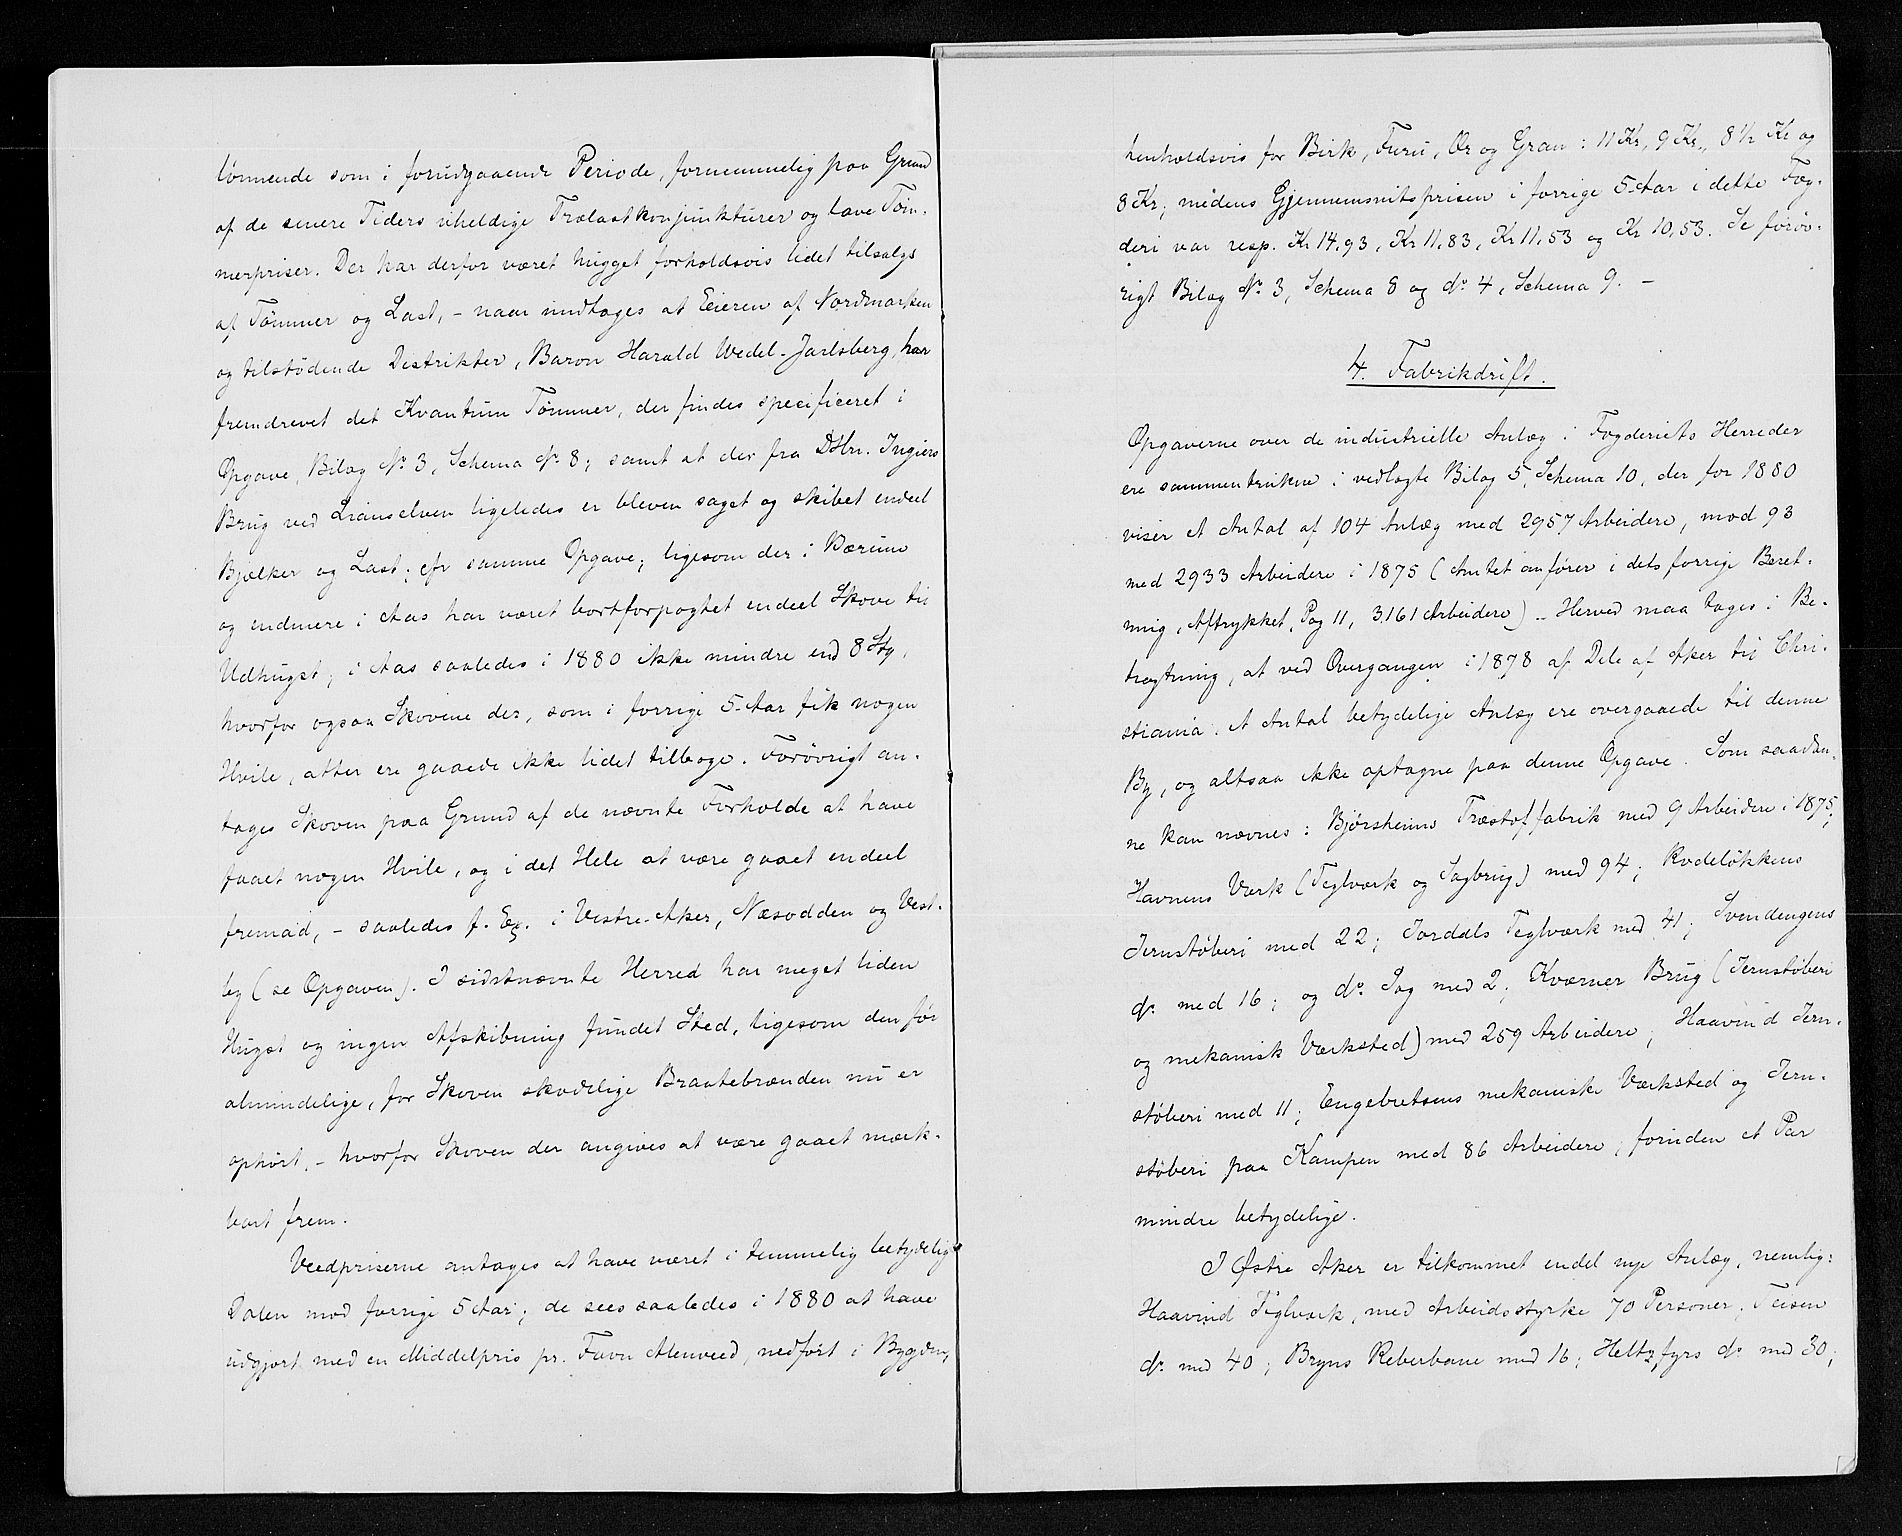 lønnende som i forudgaaende Periode, fornemmelig paa Grund
af de senere Tiders uheldige Trælastkonjunkturer og lave Tøm-
merpriser. Der har derfor været hugget forholdsvis lidet tilsalgs
af Tømmer og Last, – naar undtages at Eieren af Nordmarken
og tilstødende Distrikter, Baron Harald Wedel-Jarlsberg, har
fremdrevet det Kvantum Tømmer, der findes specificeret i
Opgave, Bilag No. 3, Schema No. 8; samt at der fra DHrr. Ingiers
Brug ved Lianselven ligeledes er bleven saget og skibet endeel
Bjelker og Last; cfr samme Opgave; ligesom der i Bærum
og endmere i Aas har været bortforpagtet endeel Skove til
Udhugst; i Aas saaledes i 1880 ikke mindre end 8 Stk,
hvorfor ogsaa Skovene der, som i forrige 5-Aar fik nogen
Hvile, atter ere gaaede ikke lidet tilbage. Forøvrigt an-
tages Skoven paa Grund af de nævnte Forholde at have
faaet nogen Hvile, og i det Hele at være gaaet endeel
fremad, – saaledes f. Ex. i Vestre-Aker, Næsodden og Vest-
by (se Opgaven). I sidstnævnte Herred har meget liden
Hugst og ingen Afskibning fundet Sted, ligesom den før
almindelige, for Skoven skadelige Braatebrænden nu er
ophørt, – hvorfor Skoven der angives at være gaaet mærk-
bart frem.
Vedpriserne antages at have været i temmelig betydelig
Dalen mod forrige 5 Aar; de sees saaledes i 1880 at have
udgjort med en Middelpris pr. Favn Alenveed, nedført i Bygden,
henholdsvis for Birk, Furu, Or og Gran: 11 Kr, 9 Kr., 8 1/2 Kr og
8 Kr; medens Gjennemsnitsprisen i forrige 5-Aar i dette Fog-
deri var resp. Kr 14,93, Kr 11,83, Kr 11,53 og Kr 10,53. Se forøv-
rigt Bilag No. 3, Schema 8 og No. 4, Schema 9. –
4. Fabrikdrift.
Opgaverne over de industrielle Anlæg i Fogderiets Herreder
ere sammentrukne i vedlagte Bilag 5, Schema 10, der for 1880
viser et Antal af 104 Anlæg med 2957 Arbeidere, mod 93
med 2933 Arbeidere i 1875 (Amtet anfører i dets forrige Beret-
ning, Aftrykket, Pag 11, 3161 Arbeidere) – Herved maa tages i Be-
tragtning, at ved Overgangen i 1878 af Dele af Aker til Chri-
stiania. et Antal betydelige Anlæg ere overgaaede til denne
By, og altsaa ikke optagne paa denne Opgave. Som saadan-
ne kan nævnes: Bjørsheims Træstoffabrik med 9 Arbeidere i 1875;
Havnens Værk (Teglværk og Sagbrug) med 94; Rodeløkkens
Jernstøberi med 22; Jordals Teglværk med 41; Svendengens
do. med 16; og do. Sag med 2; Kværner Brug (Jernstøberi
og mekanisk Værksted) med 259 Arbeidere; Haavind Jern-
støberi med 11; Engebretsens mekaniske Værksted og Jern-
støberi paa Kampen med 86 Arbeidere; foruden et Par
mindre betydelige.
I Østre Aker er tilkommet endel nye Anlæg, nemlig:
Haavind Teglværk, med Arbeidsstyrke 70 Personer; Teisen
do. med 40; Bryns Reberbane med 16; Heltzfyrs do. med 30;